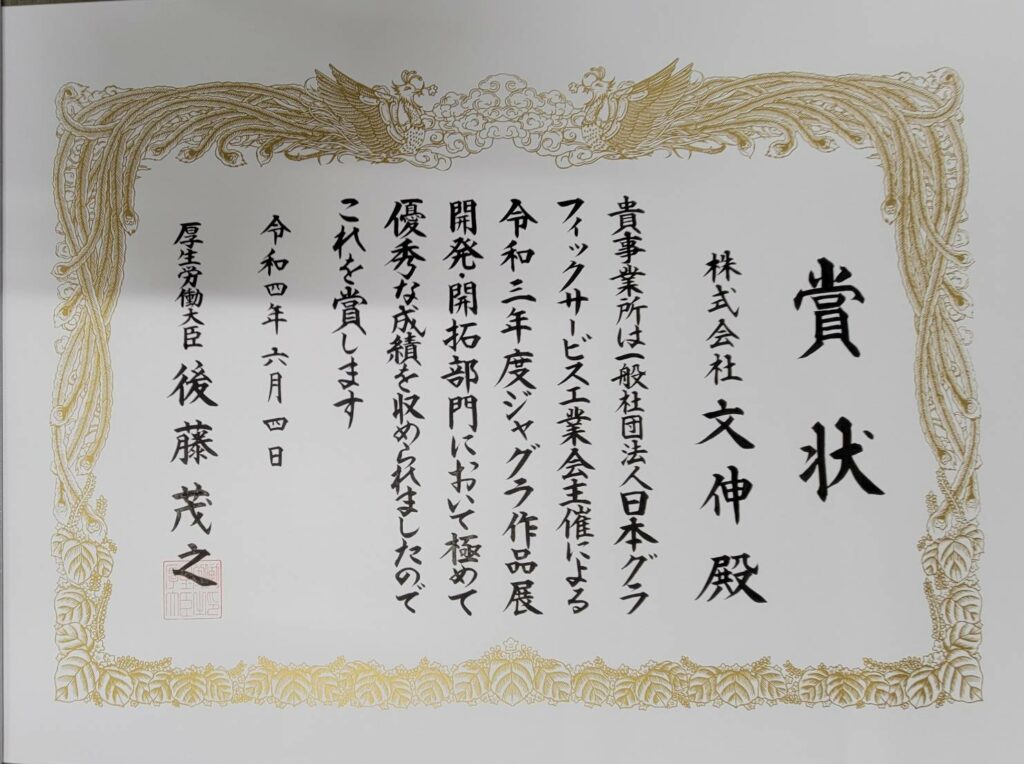 賞状
株式会社 文伸 殿
貴事業所は一般社団法人日本グラ
フィックサービス工業会主催による
令和三年度ジャグラ作品展
開発・開拓部門において極めて
優秀な成績を収められましたので
これを賞します
令和四年六月四日
厚生労働大臣 後藤茂之